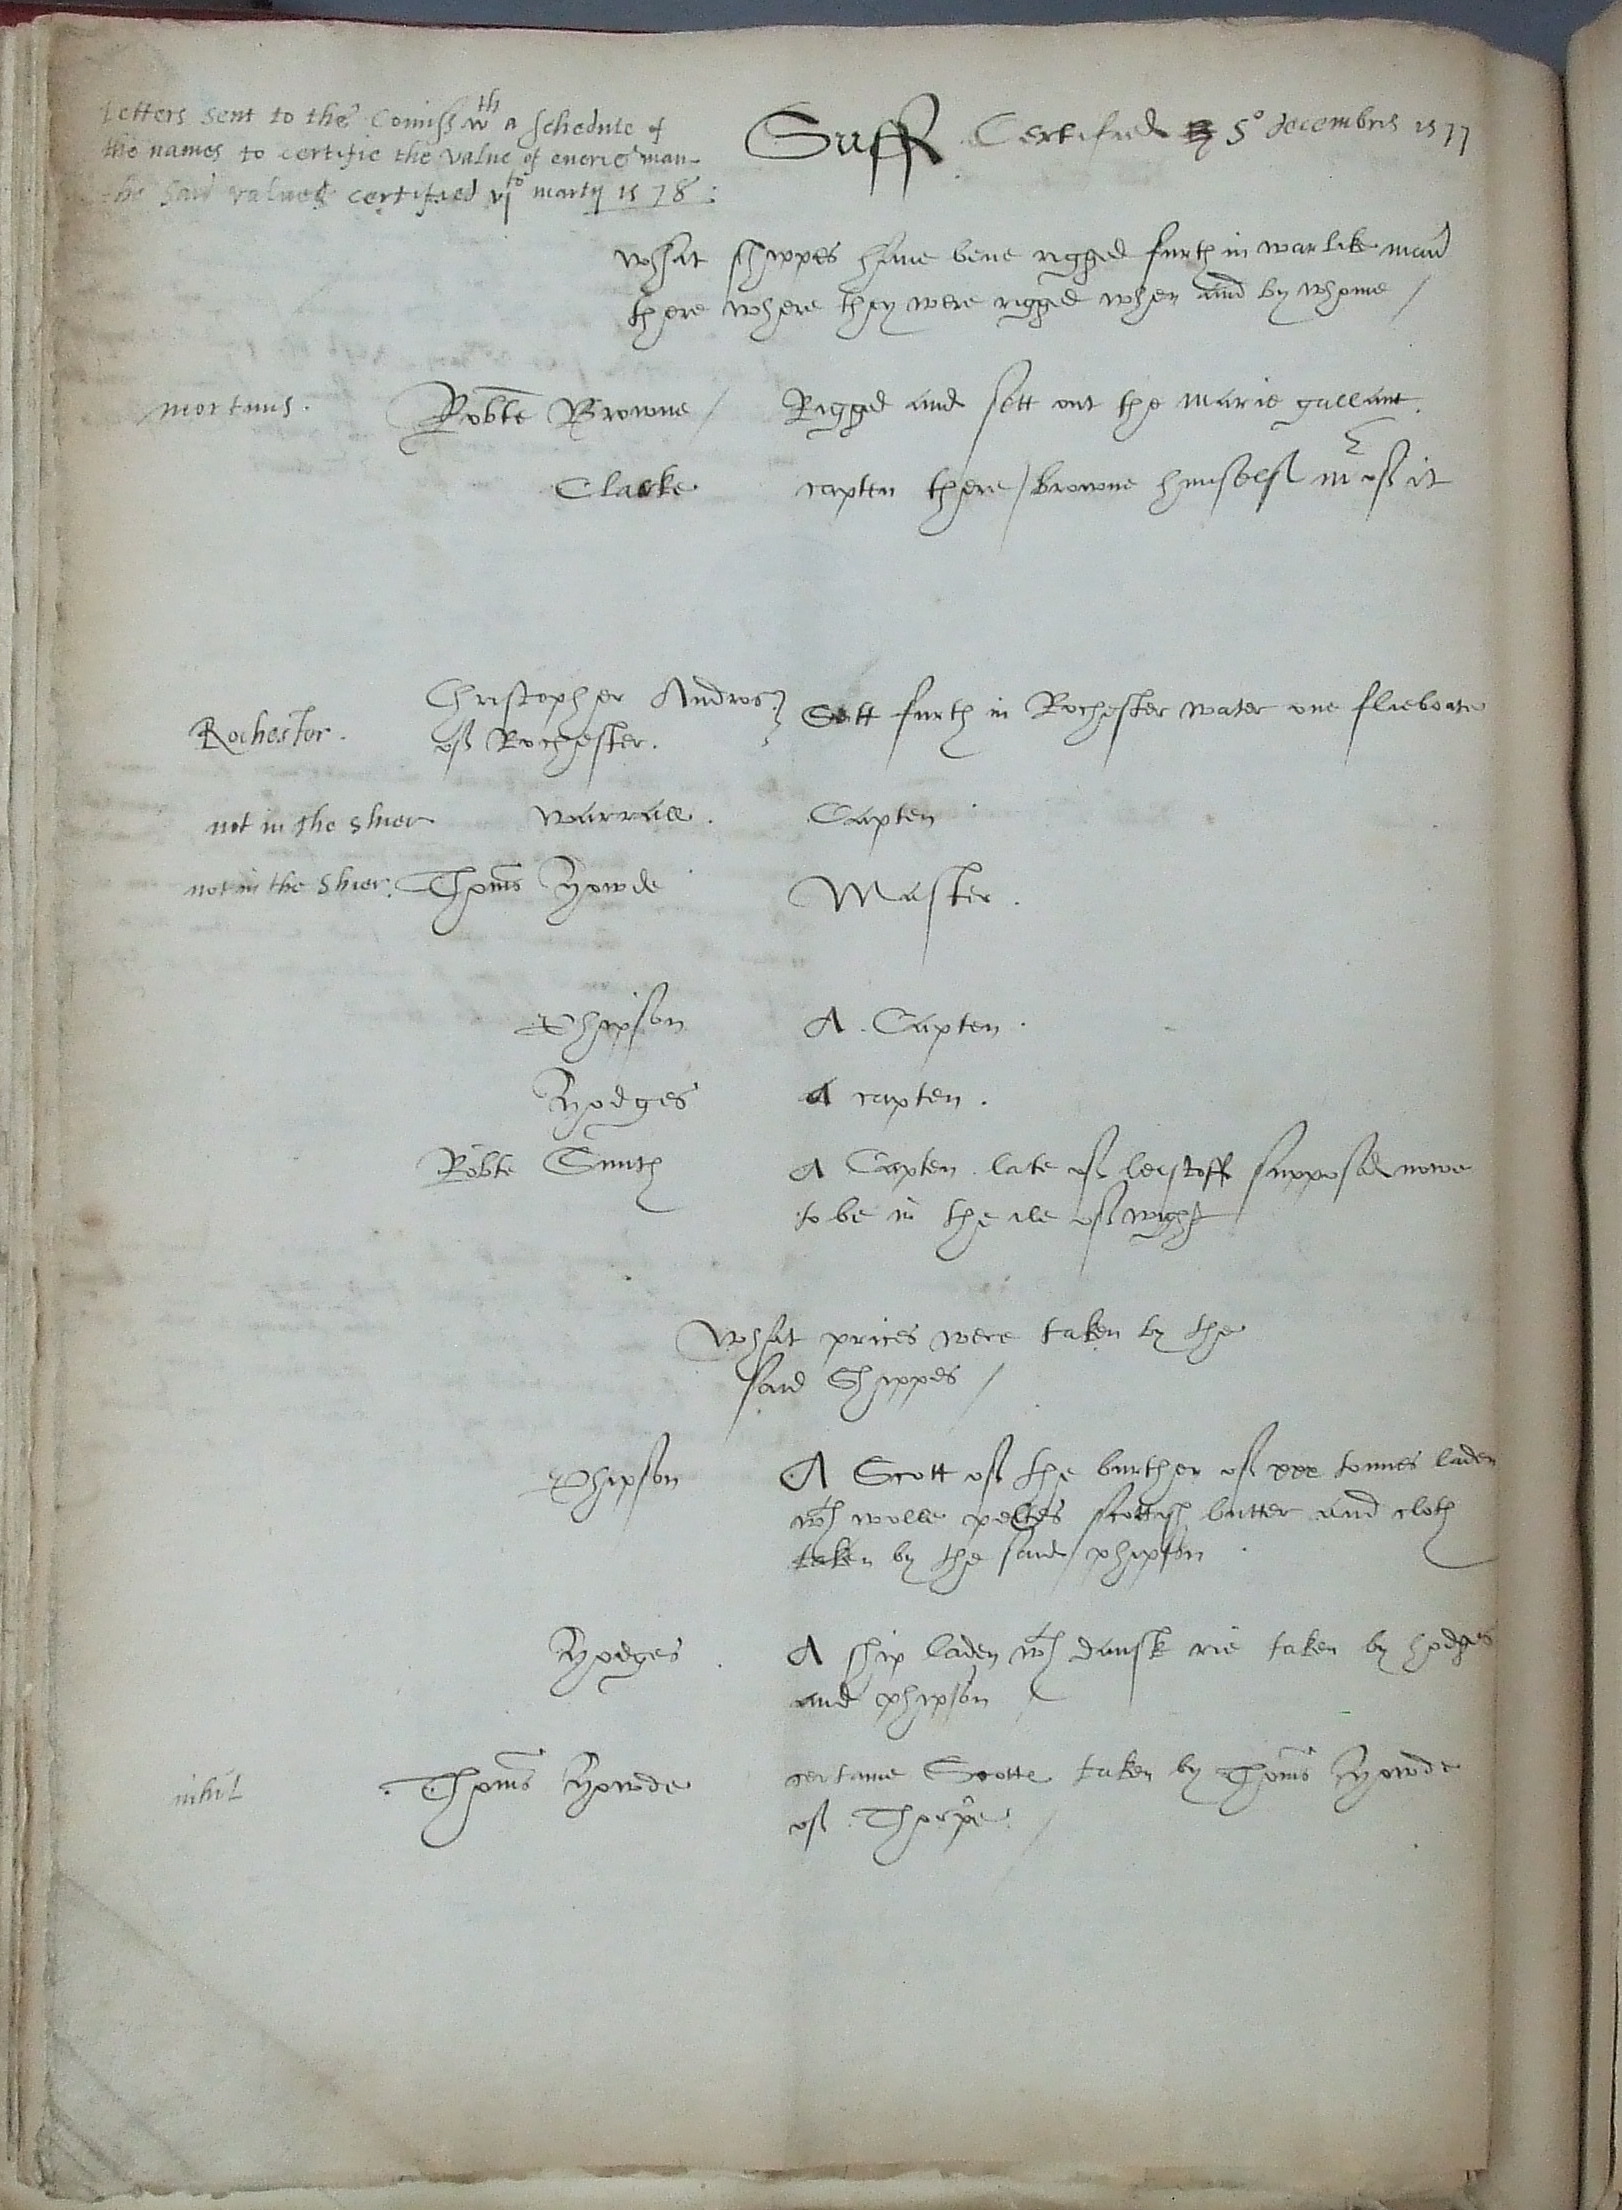 Letters sent to the Comiss wth a schedule of
the names to certifie the value of euerie man
the said values certified vjto martij 1578:
Suff Certified 5o decembris 1577
What shippes haue bene rigged furth in warlike man
there where they were rigged when and by whome /
mortuus. Robte Browne / Rigged and sett out the Marie gallant.
Clarke capten there / browne himself mr of it
Christopher Andros
of Rochester.
Rochester. Sett furth in Rochester water one flieboate
not in the shier Warrall. Capten
not in the shier. Thoms Howde Master.
Phipson A. Capten.
Hodges A capten.
Robte Smith A Capten late of leistoff supposed nowe
to be in the ile of wight
What prices were taken by the
said Shippes /
Phipson A Scott of the burthen of xxx tonnes laden
wth wolle peltes scottish butter and cloth
taken by the said phipson.
Hodges. A ship laden wth dansk rie taken by hodges
and phipson /
nihil Thoms Howde certaine Scotte taken by Thoms Howde
of Thorpe /